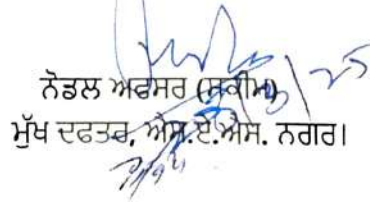 ਨੋਡਲ ਅਫਸਰ (ਸਕੀਮ)
ਮੁੱਖ ਦਫਤਰ, ਐਸ.ਏ.ਐਸ. ਨਗਰ।